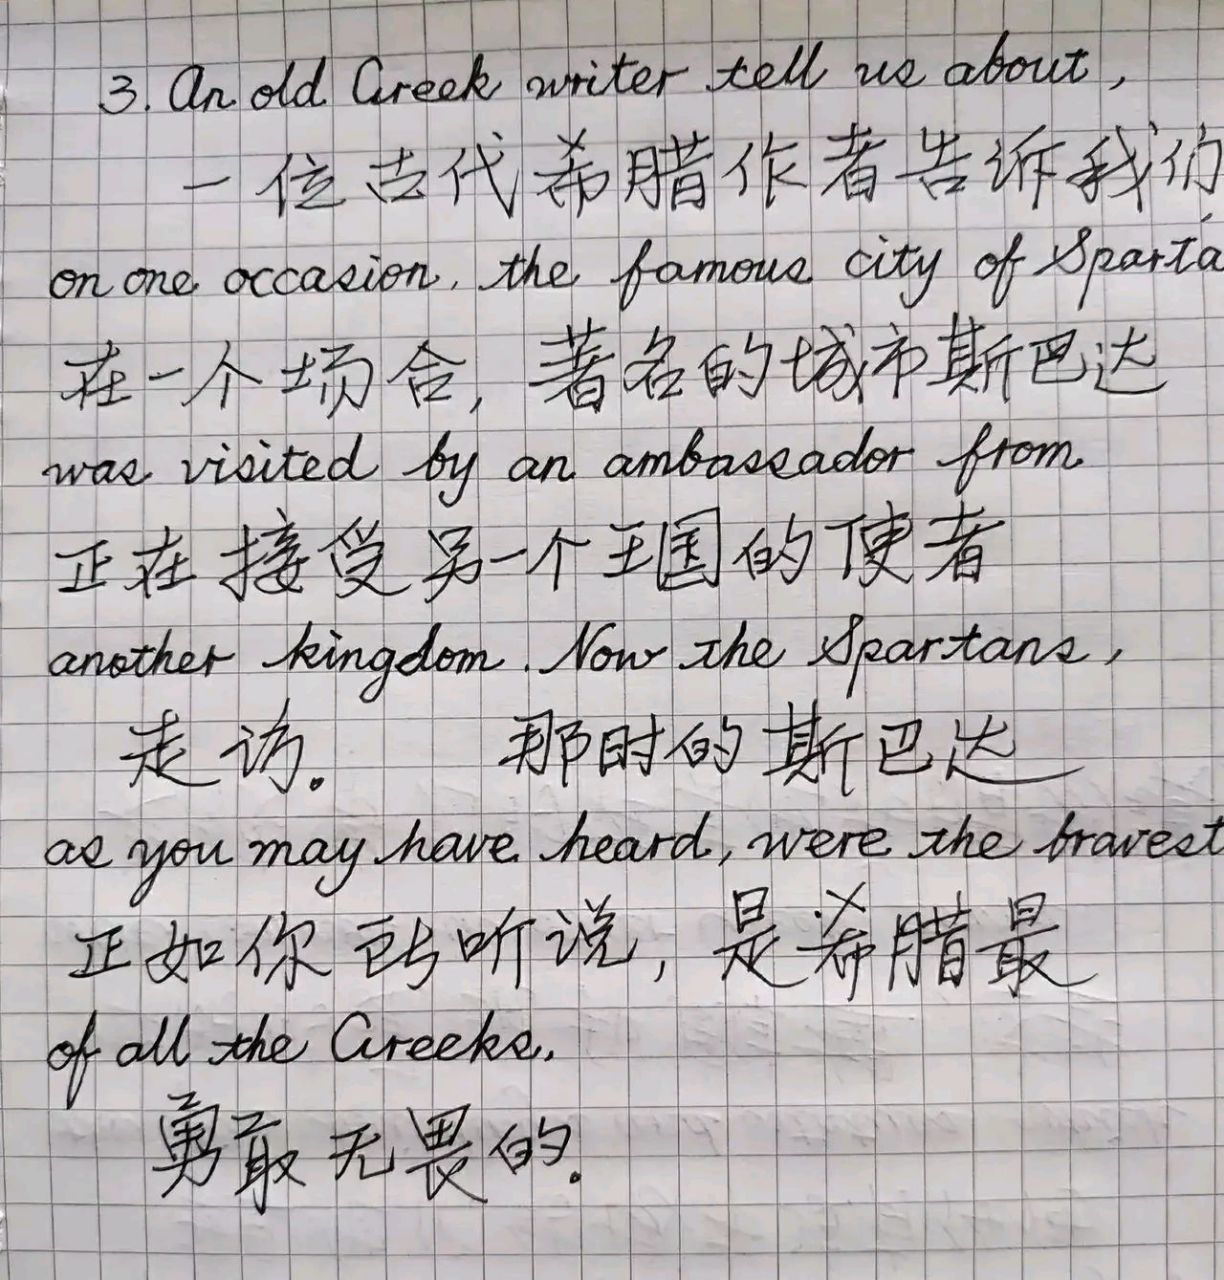 3. An old Greek writer tell us about,
一位古代希腊作者告诉我们
on one occasion, the famous city of Sparta
在一个场合,著名的城市斯巴达
was visited by an ambassador from
正在接受另一个王国的使者
another kingdom. Now the Spartans,
走访。 那时的斯巴达
as you may have heard, were the bravest
正如你所听说,是希腊最
of all the Greeks.
勇敢无畏的.